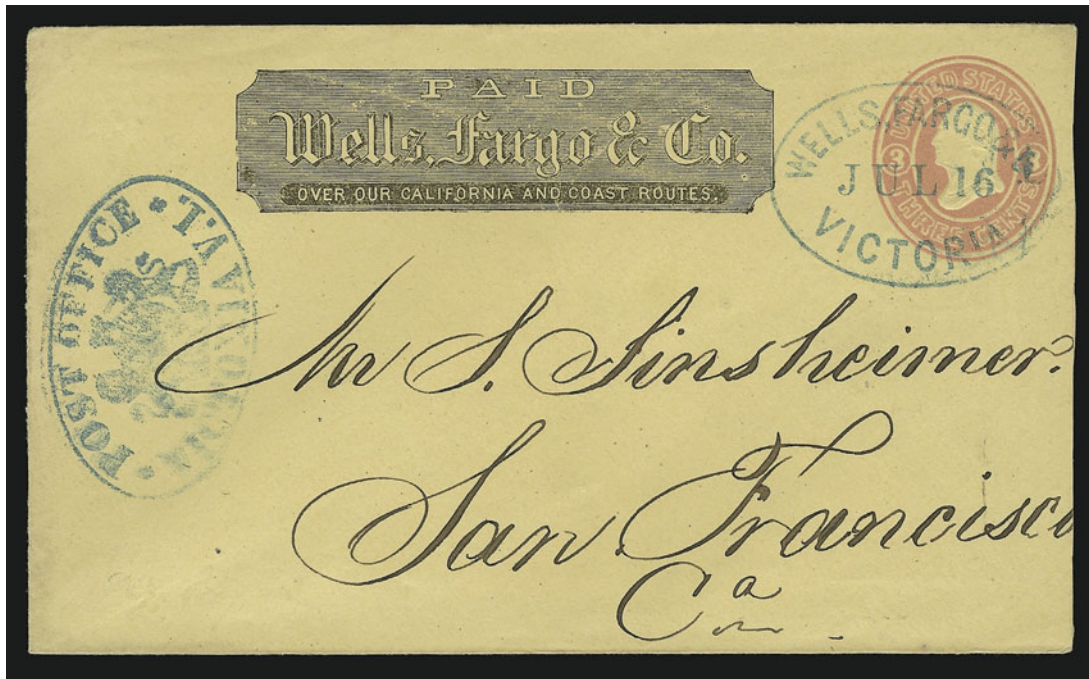 PAID
Wells, Fargo & Co.
OVER OUR CALIFORNIA AND COAST ROUTES.
UNITED STATES
3 3
THREE CENTS
WELLS, FARGO &
JUL 16
VICTORIA
POST OFFICE * PAID *
Mr S. Sinsheimer.
San Francisco
Ca